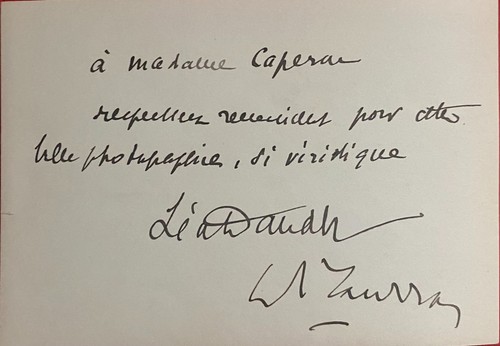 à madame Caperan
respectueux remerciements pour cette
belle photographie, si véridique
Léon Daudet
Ch Maurras